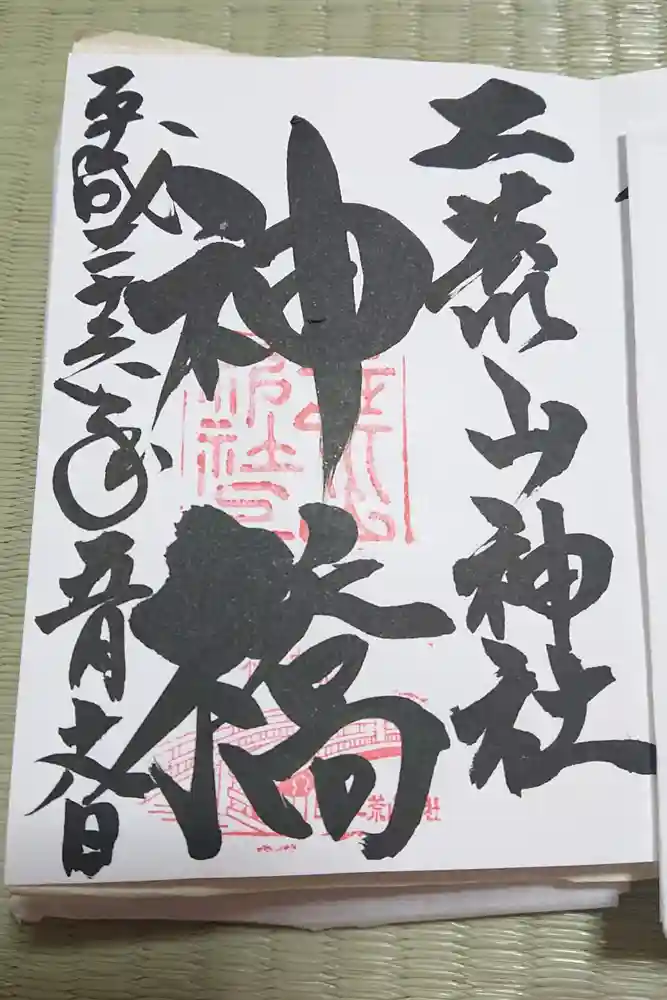 二荒山神社
神橋
平成二十六年五月十六日
二荒山神社